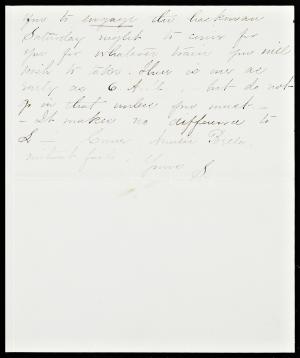 you to engage the hackman
Saturday night to come for
you for whatever train you will
wish to take. There is one as
early as 6 A.M. but do not
go in that unless you must –
– It makes no difference to
L – Come
without fail. Yours S